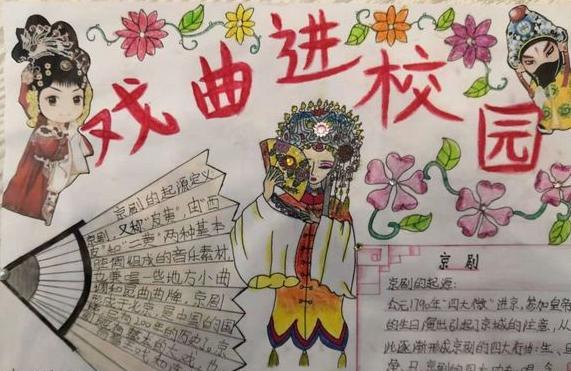 戏曲进校园
京剧的起源定义
京剧,又称"皮黄",由"西
皮"和"二黄"两种基本
腔调组成的音乐素材,
也兼唱一些地方小曲
调和昆曲曲牌,京剧
形成于北京,是中国的国
京剧
京剧的起源:
公元1790年"四大徽"进京,参加皇帝
的生日演出引起了京城的注意,从
此逐渐形成京剧的四大行当:生、旦